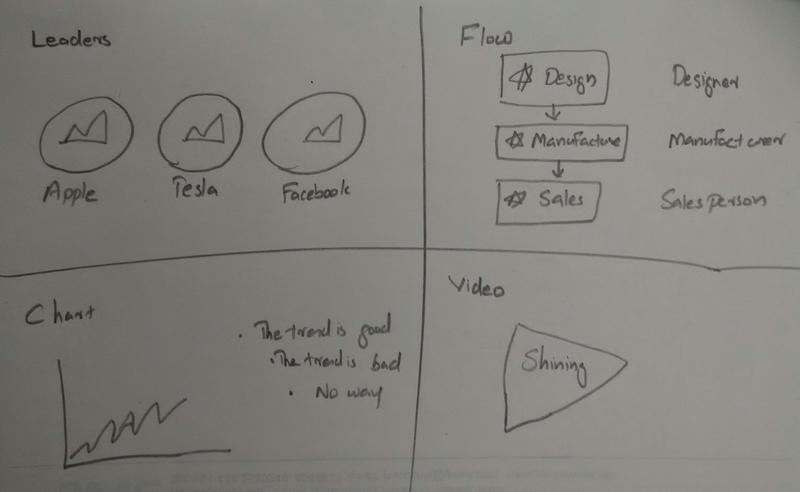 Leaders
Apple
Tesla
Facebook
Flow
Design
Designer
Manufacture
Manufacturer
Sales
Sales person
Chart
• The trend is good
• The trend is bad
• No way
Video
Shining